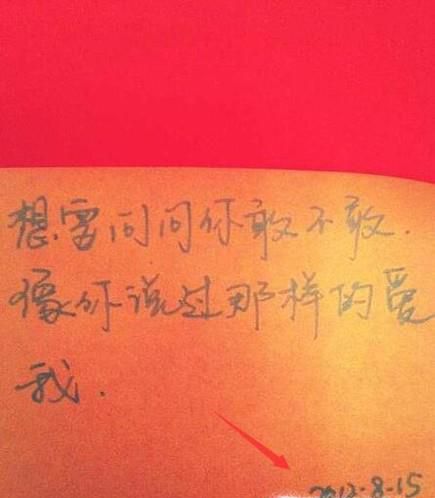 想要问问你敢不敢.
像你说过那样的爱
我.
2012-8-15